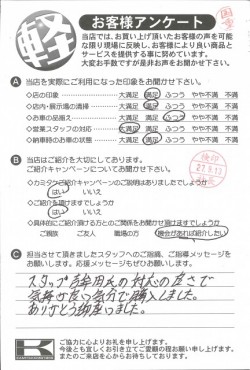 軽
お客様アンケート
当店では、お買い上げ頂いたお客様の声を可能
な限り現場に反映し、お客様により良い商品と
サービスを提供する事に努めています。
大変お手数ですが是非お声をお聞かせ下さい。
A 当店を実際にご利用になった印象をお聞かせ下さい。
◇店の印象 大満足 満足 ふつう やや不満 不満
◇店内・展示場の清掃 大満足 満足 ふつう やや不満 不満
◇お車の品揃え 大満足 満足 ふつう やや不満 不満
◇営業スタッフの対応 大満足 満足 ふつう やや不満 不満
◇納車時のお車の状態 大満足 満足 ふつう やや不満 不満
B 当店はご紹介を大切にしております。
ご紹介キャンペーンについてお聞かせ下さい。
◇カミタケご紹介キャンペーンのご説明はありましたでしょうか
はい いいえ
◇ご紹介を頂けますでしょうか
はい いいえ
◇具体的にご紹介頂ける方との関係をお聞かせ頂けますでしょうか
ご親族 ご友人 職場の方 機会があれば紹介したい
C 担当させて頂きましたスタッフへのご指摘、ご指導メッセージを
お願いします。応援メッセージもぜひお願いします。
スタッフ
の対応の良さで
気持ち良い気分で購入しました。
ありがとう御座いました。
ご協力に心よりお礼を申し上げます。
今後とも宜しくお引き立てご愛顧の程お願い申し上げます。
またのご来店を心からお待ちしております。